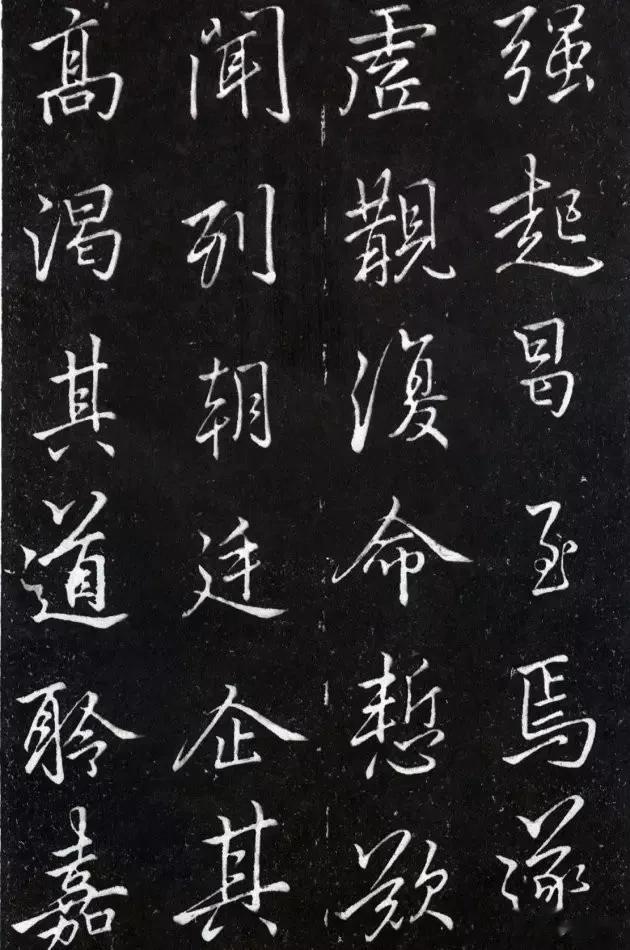 强起昌至焉遂
虛覲復命慙歎
聞列朝廷企其
高渴其道聆嘉